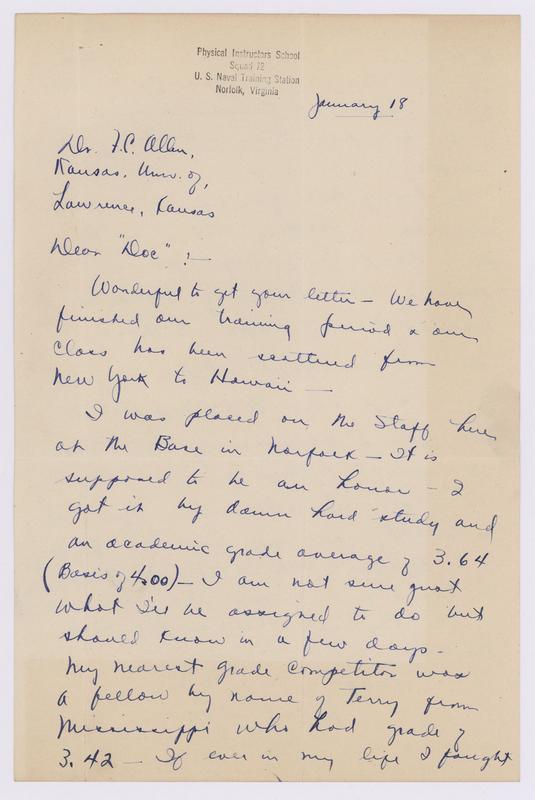 Physical Instructors School
Squad 72
U. S. Naval Training Station
Norfolk, Virginia
January 18
Dr. F.C. Allen,
Kansas, Univ. of,
Lawrence, Kansas
Dear "Doc" :-
Wonderful to get your letter - We have
finished our training period & our
class has been scattered from
New York to Hawaii -
I was placed on the Staff here
at the Base in Norfolk - It is
supposed to be an honor - I
got it by damn hard study and
an academic grade average of 3.64
(Basis of 4.00) - I am not sure just
what I'll be assigned to do but
should know in a few days -
My nearest grade competitor was
a fellow by name of Terry from
Mississippi who had grade of
3.42 - If ever in my life I fought